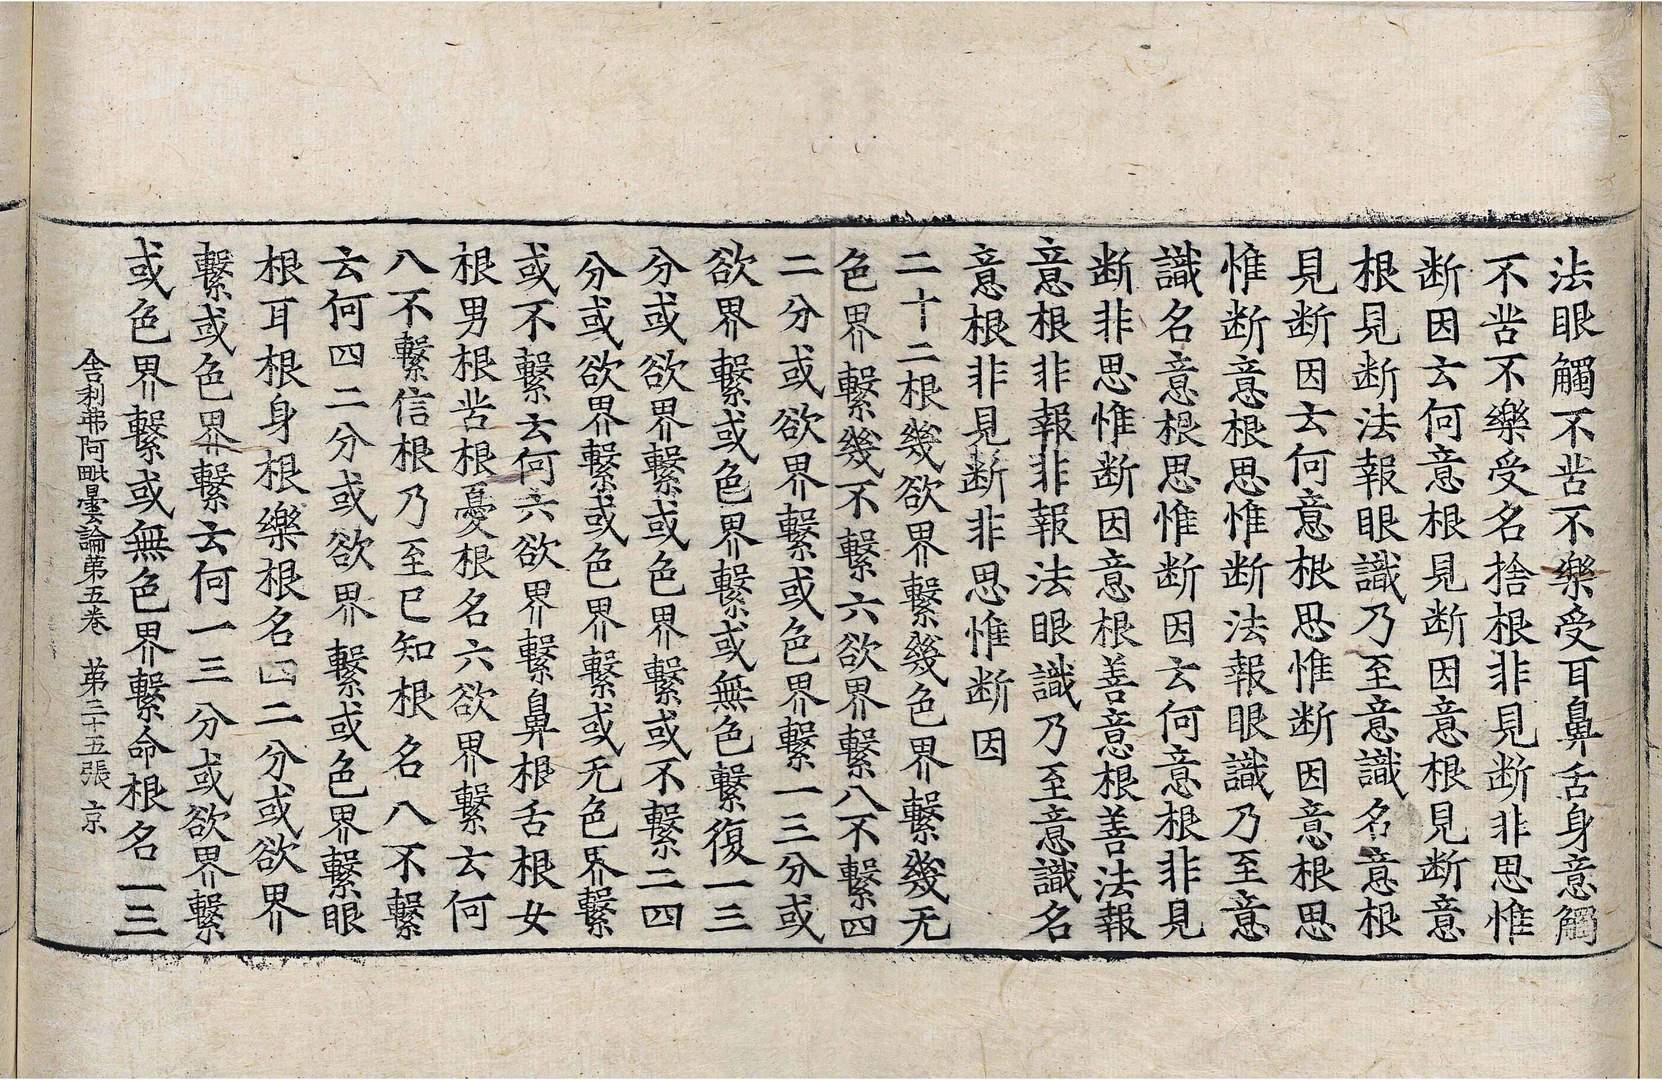 法眼觸不苦不樂受耳鼻舌身意觸
不苦不樂受名捨根非見断非思惟
断因云何意根見断因意根見断意
根見断法報眼識乃至意識名意根
見断因云何意根思惟断因意根思
惟断意根思惟断法報眼識乃至意
識名意根思惟断因云何意根非見
断非思惟断因意根善意根善法報
意根非報非報法眼識乃至意識名
意根非見断非思惟断因
二十二根幾欲界繫幾色界繫幾无
色界繫幾不繫六欲界繫八不繫四
二分或欲界繫或色界繫一三分或
欲界繫或色界繫或無色繫復一三
分或欲界繫或色界繫或不繫二四
分或欲界繫或色界繫或无色界繫
或不繫云何六欲界繫鼻根舌根女
根男根苦根憂根名六欲界繫云何
八不繫信根乃至已知根名八不繫
云何四二分或欲界繫或色界繫眼
根耳根身根樂根名四二分或欲界
繫或色界繫云何一三分或欲界繫
或色界繫或無色界繫命根名一三
舍利弗阿毗曇論第五卷 第三十五張 京